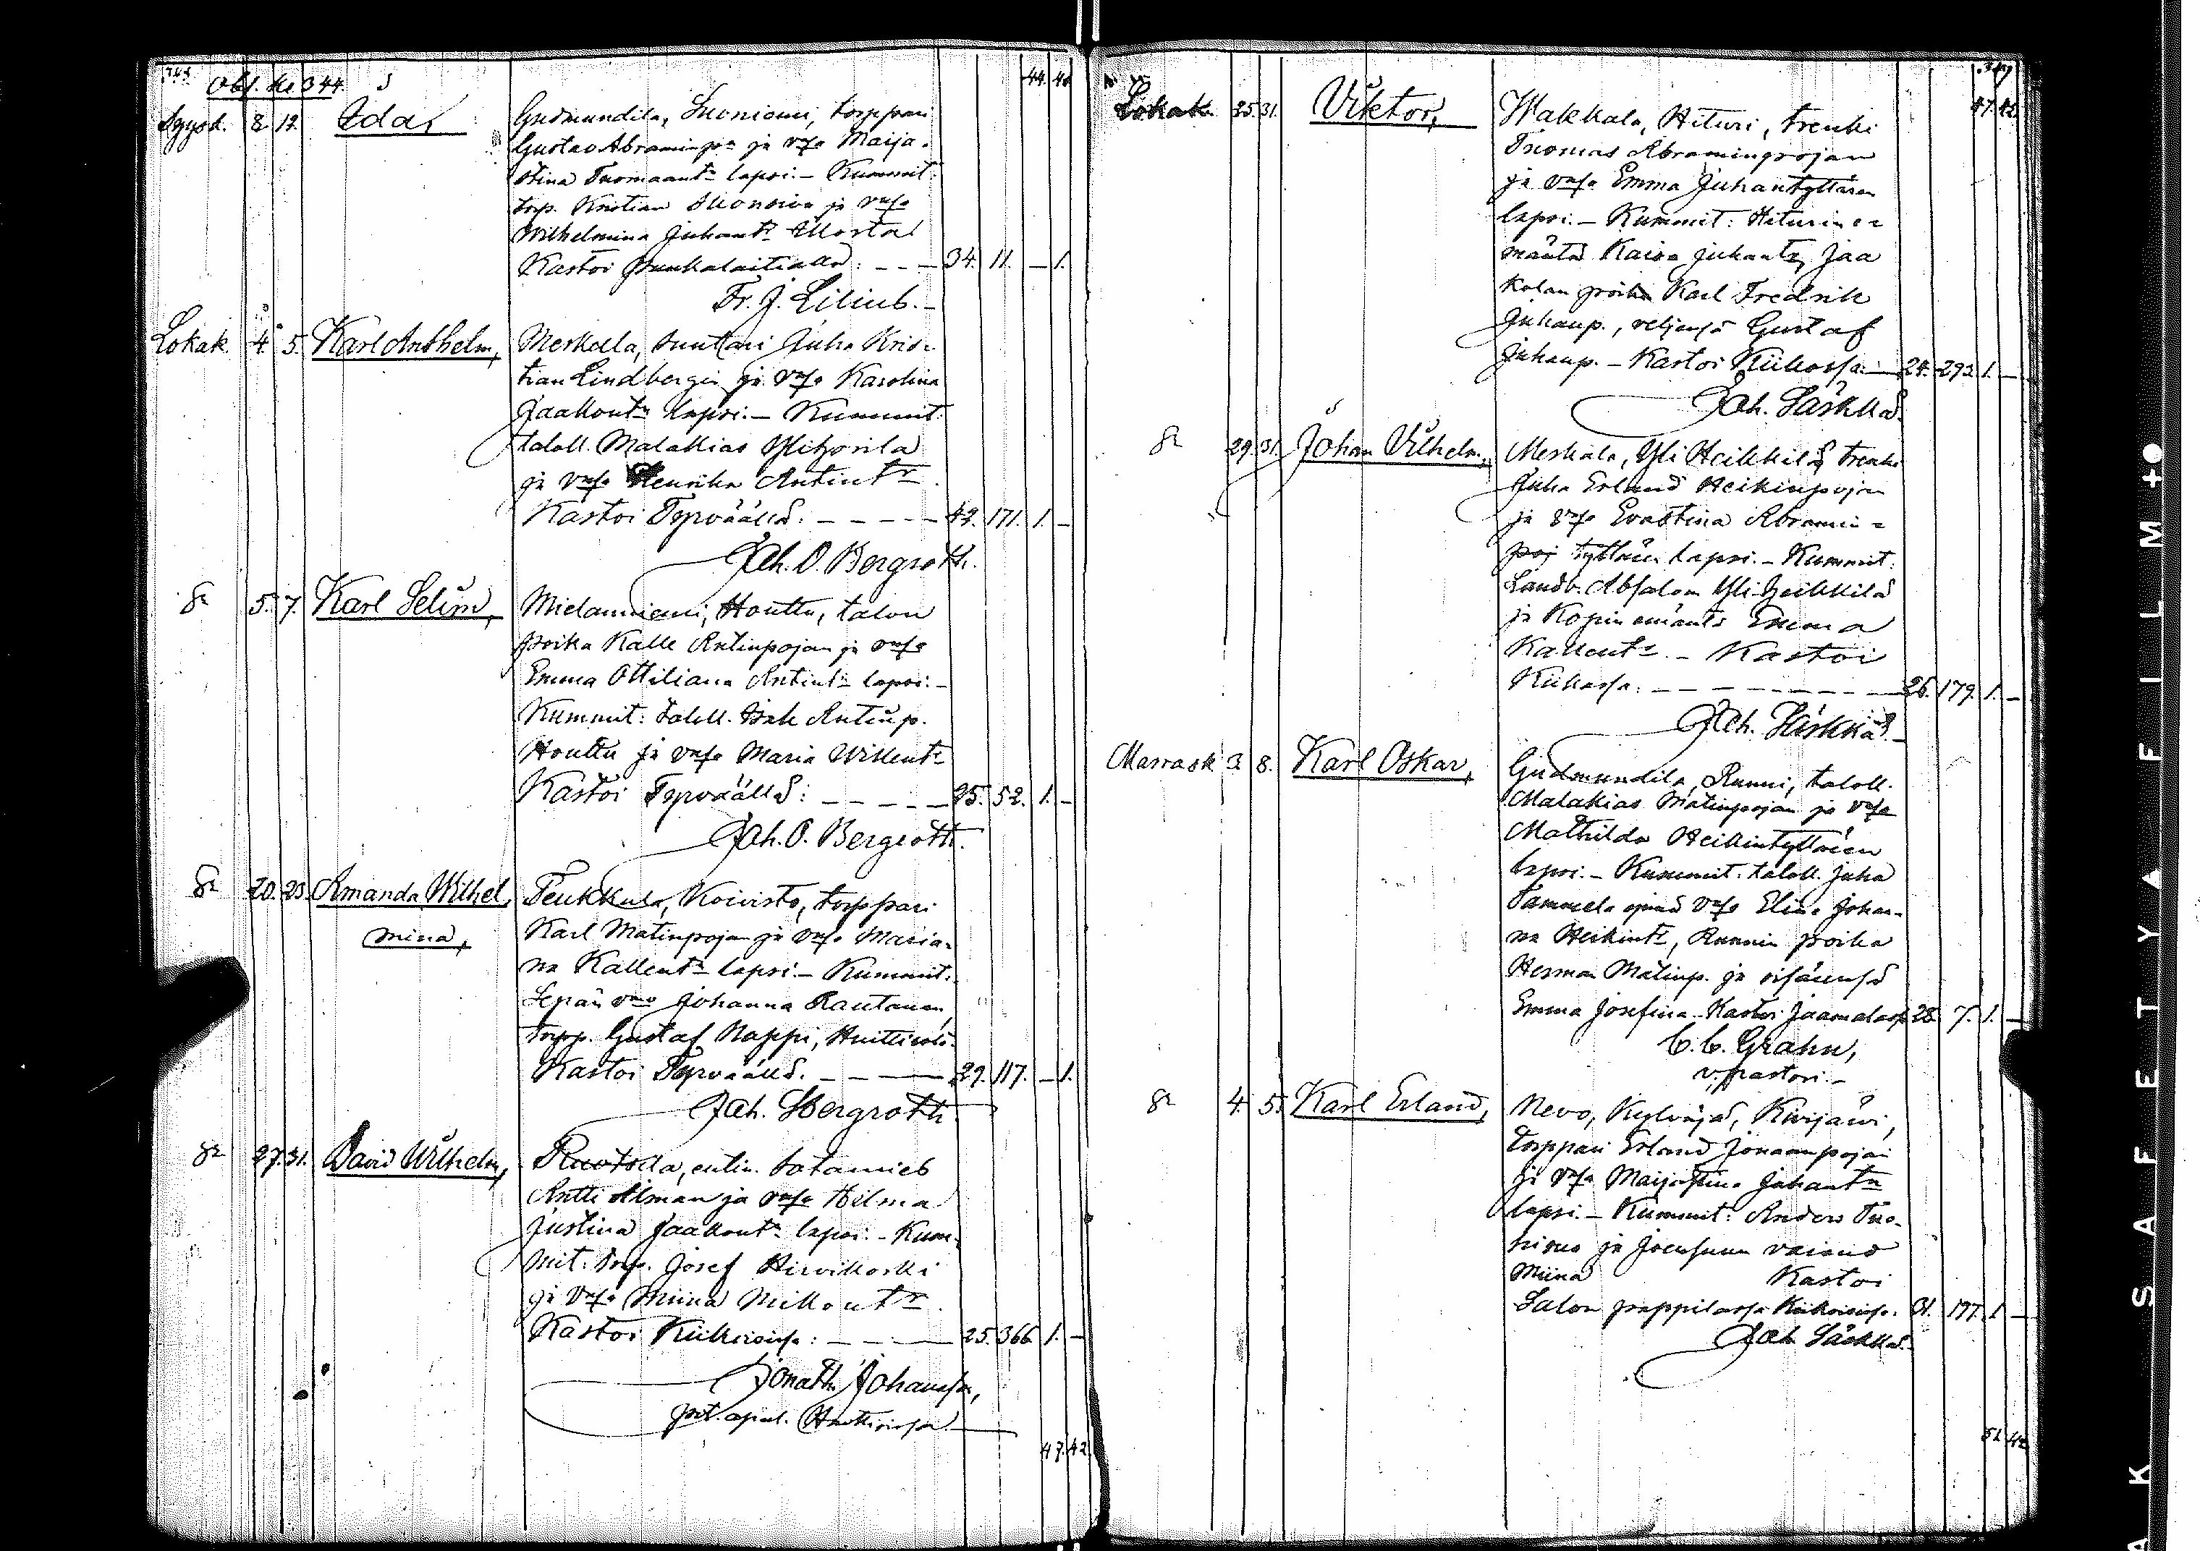 Syysk. 8. 12. Ida,
Gudmundila, Suoniemi, torppari
Gustav Abraminp:n ja v:mo Maija
Stina Tuomaant:n lapsi. – Kummit:
torp. Kristian Suoniemi ja v:mo
Wilhelmina Juhant:r
Kastoi 34. 11. – 1.
Fr. J. Lilius. –
Lokak. 4. 5. Karl Anshelm,
Merkella, suutari Juha Kris-
tian Lindbergin ja v:mo Karolina
Jaakont:n lapsi. – Kummit:
taloll. Malakias Ylitzorila
ja v:mo Henrika Antint:r
Kastoi Tyrväällä: – – – – – 42. 171. 1. –
Joh. O. Bergroth.
5. 7. Karl Selim,
Houttu, talon
poika Kalle Antinpojan ja v:mo
Emma Ottiliana Antint:n lapsi. –
Kummit: taloll. Isak Antinp.
Houttu ja v:mo Maria Willent:r
Kastoi Tyrväällä: – – – – – 25. 52. 1. –
Joh. O. Bergroth.
20. 23. Amanda Wilhel
mina,
Teukkula, Koivisto, torppari
Karl Matinpojan ja v:mo Maria-
na Kallent:n lapsi. – Kummit:
Sepän v:mo Johanna Rautanen,
torpp. Gustaf Nappi,
Kastoi Tyrväällä. – – – 29. 117. – 1.
Joh. Bergroth.
27. 31. David Wilhelm,
Ruotsila, entin. sotamies
Antti Alman ja v:mo Hilma
Justina Jaakont:n lapsi. – Kum-
mit: torp. Josef Hirvikoski
ja v:mo Miina Mikont:r
Kastoi Kiikoisissa: – – – 25. 366. 1. –
Jonath. Johansson,
pit. apul. Huittisissa
47. 42.
47. 42.
Lokak. 25. 31. Viktor,
Wakkala, Hituri, trenki
Tuomas Abraminpojan
ja v:mo Emma Juhantyttären
lapsi. – Kummit: Hiturin e-
mäntä Kaisa Juhant:r, Jaa
kolan poika Karl Fredrik
Juhanp., veljensä Gustaf
Juhanp. – Kastoi Kiikossa: – 24. 293. 1. –
Joh. Säskkä.
29. 31. Johan Vilhelm,
Meskala, Yli Heikkilä, trenki
Juha Erland Heikinpojan
ja v:mo Evastina Abramin-
poj tyttären lapsi. – Kummit:
Landb. Absalom Yli-Heikkilä
ja Kopin emäntä Emma
Kallent:r – Kastoi
Kiikossa: – – – – – – – 26. 179. 1. –
Marrask 3. 8. Karl Oskar,
Gudmundila, Runni, taloll.
Malakias Matinpojan ja v:mo
Mathilda Heikintyttären
lapsi. – Kummit: taloll. Juha
Sammela v:mo Elina Johan-
na Heikint:r, Runnin poika
Herman Matinp. ja sisärensä
Emma Josefina. Kastoi 28. 7. 1. –
C. C. Grahn,
v. pastori. –
4. 5. Karl Erland,
Nevo, Kylväjä, Kivijärvi,
torppari Erland Joonaanpojan
ja v:mo Maijastina Juhant:n
lapsi. – Kummit: Anders Tuo-
ja Joensuun vaimo
Miina Kastoi
Salon pappilassa Kiikoisissa. 31. 177. 1. –
51. 42.
AK SAFETY▲FILM